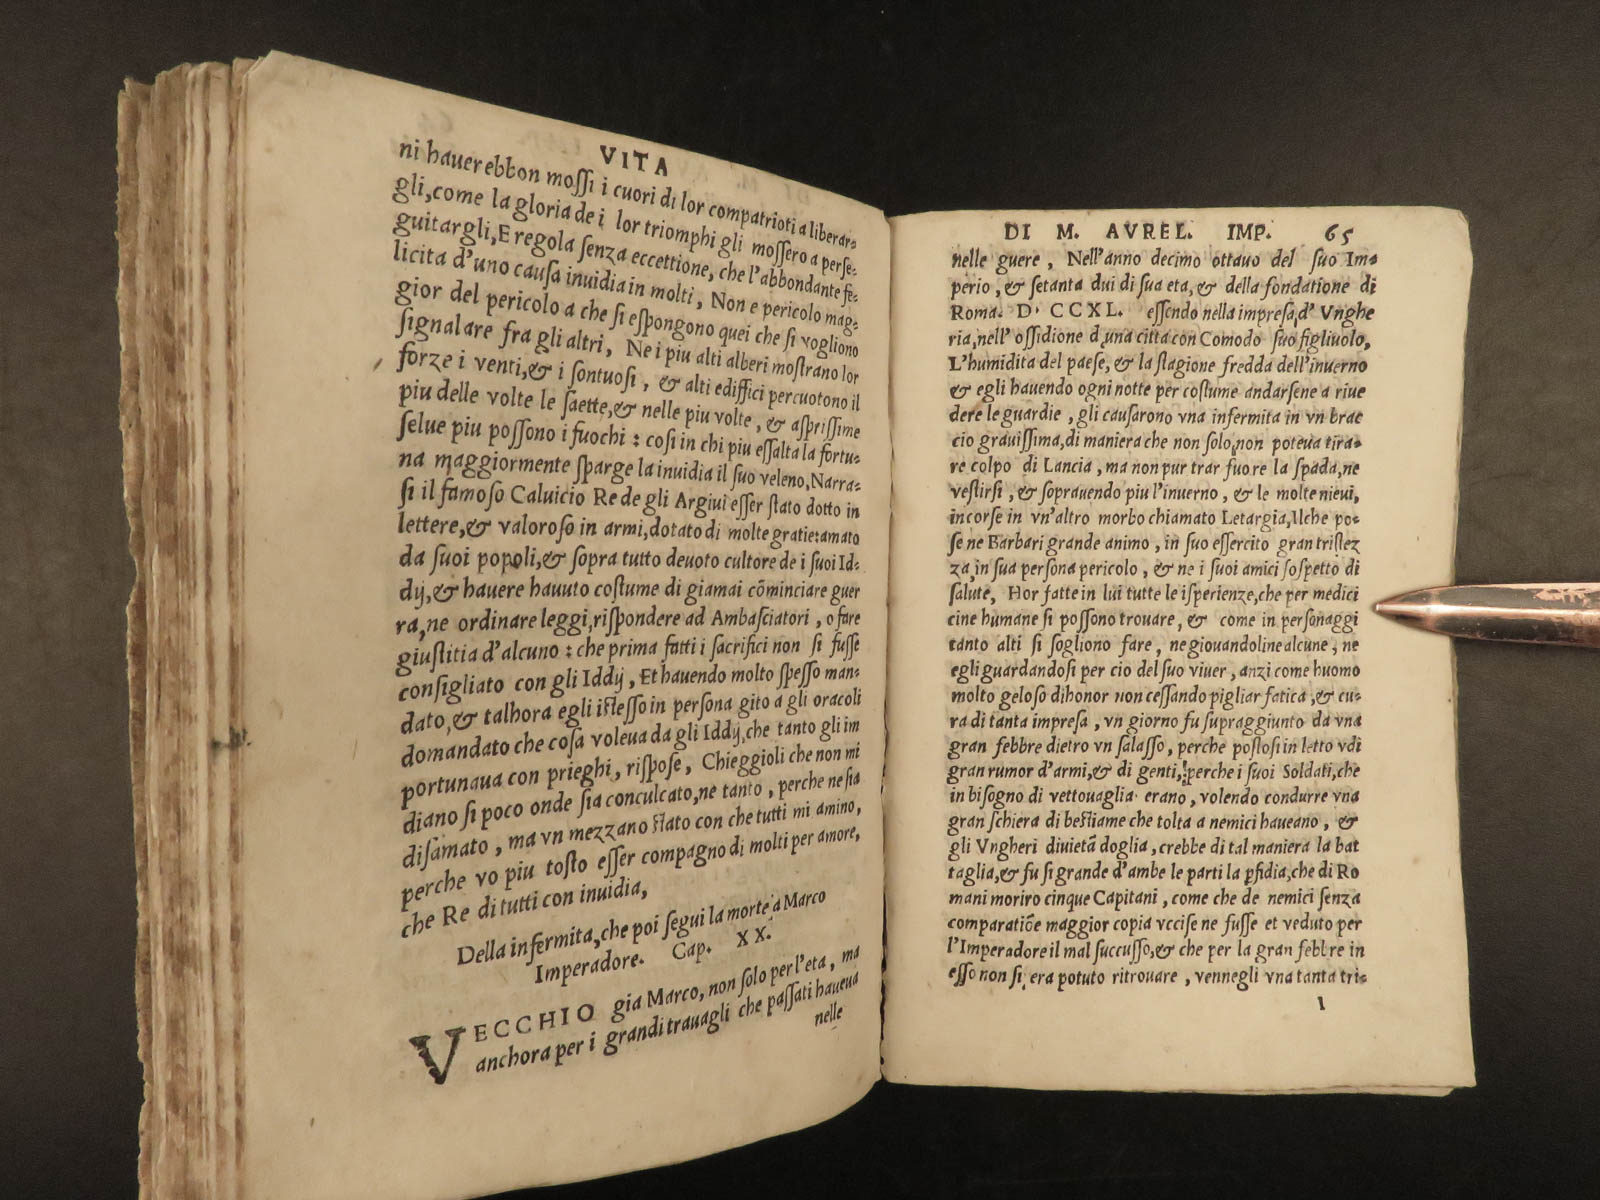 VITA
ni hauerebbon mossi i cuori di lor compatrioti a liberar-
gli, come la gloria de i lor triomphi gli mossero a perse-
guitargli, E regola senza eccettione, che l'abbondante fe-
licita d'uno causa inuidia in molti, Non e pericolo mag-
gior del pericolo a che si espongono quei che si vogliono
signalare fra gli altri, Ne i piu alti alberi mostrano lor
forze i venti, & i sontuosi, & alti ediffici percuotono il
piu delle volte le saette, & nelle piu volte, & asprissime
selue piu possono i fuochi: cosi in chi piu essalta la fortu-
na maggiormente sparge la inuidia il suo veleno, Narra-
si il famoso Caluicio Re de gli Argiui esser stato dotto in
lettere, & valoroso in armi, dotato di molte gratie: amato
da suoi popoli, & sopra tutto deuoto cultore de i suoi Id-
dij, & hauere hauuto costume di giamai cōminciare guer
ra, ne ordinare leggi, rispondere ad Ambasciatori, o fare
giustitia d'alcuno: che prima fatti i sacrifici non si fusse
consigliato con gli Iddij, Et hauendo molto spesso man-
dato, & talhora egli istesso in persona gito a gli oracoli
domandato che cosa voleua da gli Iddij, che tanto gli im
portunaua con prieghi, rispose, Chieggioli che non mi
diano si poco onde sia conculcato, ne tanto, perche ne sia
disamato, ma vn mezzano stato con che tutti mi amino,
perche vo piu tosto esser compagno di molti per amore,
che Re di tutti con inuidia,
Della infermita, che poi segui la morte a Marco
Imperadore. Cap. XX.
VECCHIO gia Marco, non solo per l'eta, ma
anchora per i grandi trauagli che passati haueua
nelle
DI M. AVREL. IMP. 65
nelle guere, Nell'anno decimo ottauo del suo Im-
perio, & setanta dui di sua eta, & della fondatione di
Roma. D. CCXL. essendo nella impresa, d'Vnghe
ria, nell'ossidione d'una citta con Comodo suo figliuolo,
L'humidita del paese, & la stagione fredda dell'inuerno
& egli hauendo ogni notte per costume andarsene a riue
dere le guardie, gli causarono vna infermita in vn brac
cio grauissima, di maniera che non solo, non poteua tira-
re colpo di Lancia, ma non pur trar fuore la spada, ne
vestirsi, & soprauendo piu l'inuerno, & le molte nieui,
incorse in vn'altro morbo chiamato Letargia, Ilche po-
se ne Barbari grande animo, in suo essercito gran tristez
za, in sua persona pericolo, & ne i suoi amici sospetto di
salute, Hor fatte in lui tutte le isperienze, che per medici
cine humane si possono trouare, & come in personaggi
tanto alti si sogliono fare, ne giouandoline alcune, ne
egli guardandosi per cio del suo viuer, anzi come huomo
molto geloso dihonor non cessando pigliar fatica, & cu-
ra di tanta impresa, vn giorno fu supraggiunto da vna
gran febbre dietro vn salasso, perche postosi in letto vdi
gran rumor d'armi, & di genti, perche i suoi Soldati, che
in bisogno di vettouaglia erano, volendo condurre vna
gran schiera di bestiame che tolta a nemici haueano, &
gli Vngheri diuietā doglia, crebbe di tal maniera la bat
taglia, & fu si grande d'ambe le parti la pfidia, che di Ro
mani moriro cinque Capitani, come che de nemici senza
comparatiōe maggior copia vccise ne fusse et veduto per
l'Imperadore il mal succusso, & che per la gran febbre in
esso non si era potuto ritrouare, vennegli vna tanta tri-
I